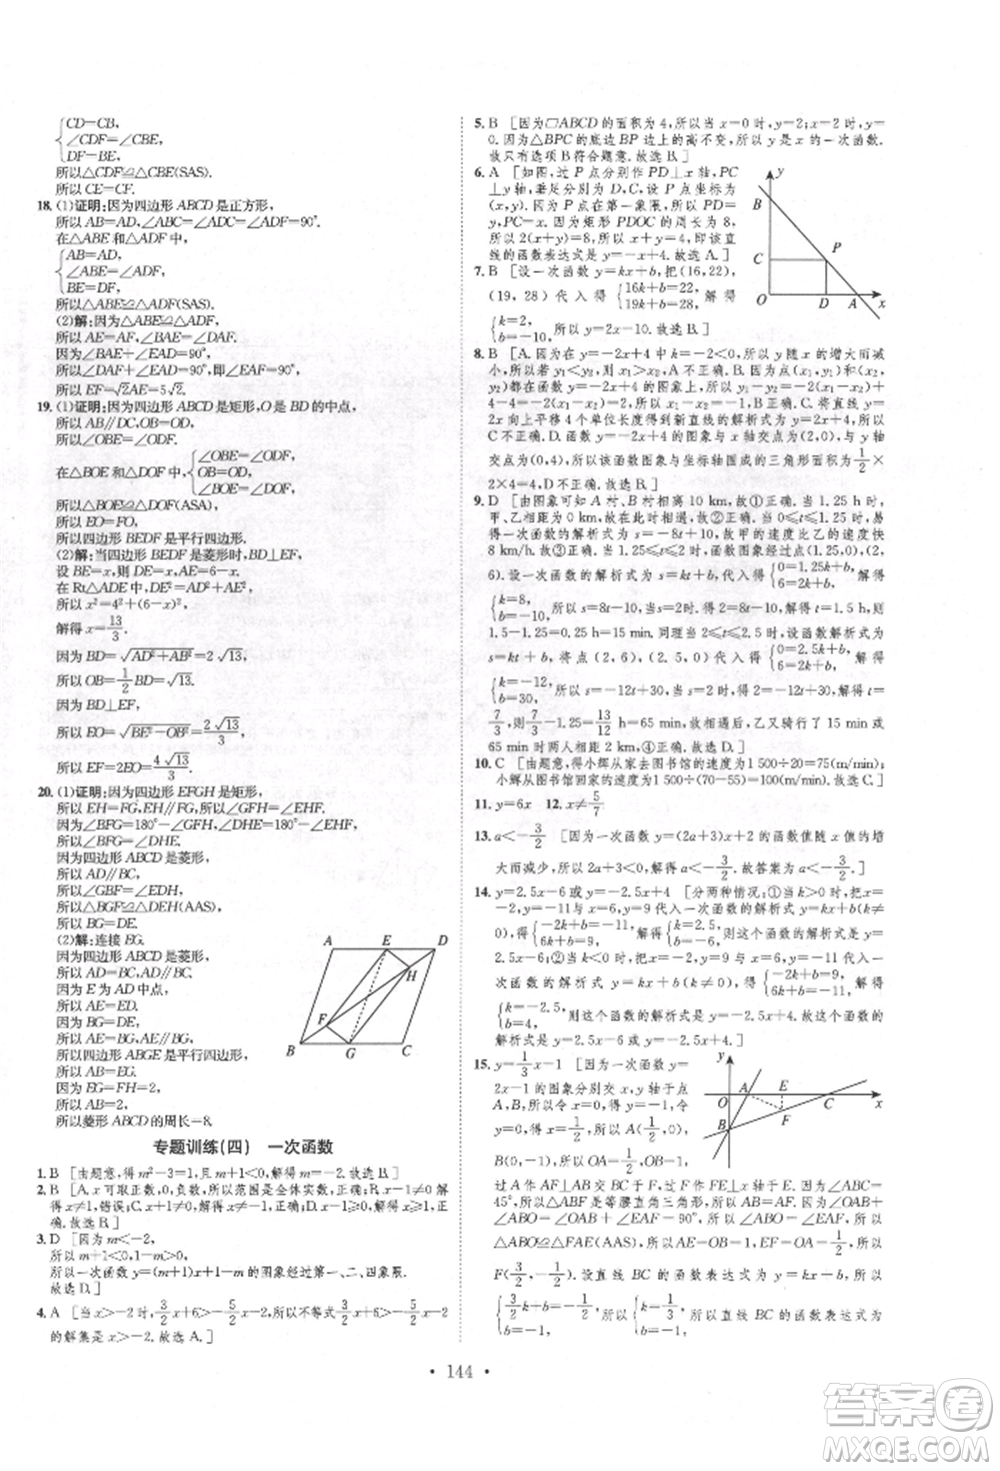 CD=CB,
∠CDF=∠CBE,
DF=BE,
所以△CDF≌△CBE(SAS).
所以 CE=CF.
18.(1)证明:因为四边形 ABCD 是正方形,
所以 AB=AD,∠ABC=∠ADC=∠ADF=90°.
在△ABE 和△ADF 中,
AB=AD,
∠ABE=∠ADF,
BE=DF,
所以△ABE≌△ADF(SAS).
(2)解:因为△ABE≌△ADF,
所以 AE=AF,∠BAE=∠DAF.
因为∠BAE+∠EAD=90°,
所以∠DAF+∠EAD=90°,即∠EAF=90°.
所以 EF=√2AE=5√2.
19.(1)证明:因为四边形 ABCD 是矩形,O 是 BD 的中点,
所以 AB∥DC,OB=OD,
所以∠OBE=∠ODF.
在△BOE 和△DOF 中,{∠OBE=∠ODF, OB=OD, ∠BOE=∠DOF,
所以△BOE≌△DOF(ASA).
所以 EO=FO,
所以四边形 BEDF 是平行四边形.
(2)解:当四边形 BEDF 是菱形时,BD⊥EF.
设 BE=x,则 DE=x,AE=6-x.
在 Rt△ADE 中,DE²=AD²+AE²,
所以 x²=4²+(6-x)²,
解得 x=13/3.
因为 BD=√(AD²+AB²)=2√13,
所以 OB=1/2BD=√13.
因为 BD⊥EF,
所以 EO=√(BE²-OB²)=2√13/3.
所以 EF=2EO=4√13/3.
20.(1)证明:因为四边形 EFGH 是矩形,
所以 EH=FG,EH∥FG,所以∠GFH=∠EHF.
因为∠BFG=180°-∠GFH,∠DHE=180°-∠EHF,
所以∠BFG=∠DHE.
因为四边形 ABCD 是菱形,
所以 AD∥BC,
所以∠GBF=∠EDH,
所以△BGF≌△DEH(AAS).
所以 BG=DE.
(2)解:连接 EG.
因为四边形 ABCD 是菱形,
所以 AD∥BC,AD=BC.
因为 E 为 AD 中点,
所以 AE=ED.
因为 BG=DE,
所以 AE=BG,AE∥BG,
所以四边形 ABGE 是平行四边形,
所以 AB=EG.
因为 EG=FH=2,
所以 AB=2,
所以菱形 ABCD 的周长=8.
A E D H F B G C
专题训练(四) 一次函数
1.B [由题意,得 m²-3=1,且 m+1<0,解得 m=-2.故选 B.]
2.B [A.x 可取正数,0,负数,所以范围是全体实数,正确;B.1-x≠0,解得 x≠1,错误;
3.D [因为 m<-2,
所以 m+1<0,1-m>0,
所以一次函数 y=(m+1)x+1-m 的图象经过第一、二、四象限.
故选 D.]
4.A [当 x>-2 时,3/2x+2>-5/2x-
的解集是 x>-2,故选 A.]
5.B [因为▱ABCD 的面积为 4,所以当 x=0 时,y=2;当 x=2 时,y=
0.因为△BPC 的底边 BC 上的高不变,所以 y 是 x 的一次函数.
故只有选项 B 符合题意.故选 B.]
6.A [如图,过 P 点分别作 PD⊥x 轴,
PC⊥y 轴,垂足分别为 D,C.设 P 点坐标为
(x,y).因为 P 点在第一象限,所以 PD=y,
PC=x.因为矩形 PDOC 的周长为 8,
所以 2(x+y)=8,所以 x+y=4,即该直
线的函数表达式是 y=-x+4.故选 A.]
y B P C O D A x
7.B [设一次函数 y=kx+b,把(16,22),
(19,28)代入得{16k+b=22, 19k+b=28,解得
{k=2, b=-10,所以 y=2x-10.故选 B.]
8.B [A.因为一次函数 y=-2x+4 中 k=-2<0,所以 y 随 x 的增大而减
小,所以若 x₁<x₂,则 y₁>y₂,故 A 不正确;
4-4=-2(x₁-x₂),故 B 正确;
2x 向上平移 4 个单位长度得到新直线的解析式为 y=-2x+4,故
C 不正确;D.因为一次函数 y=-2x+4 的图象与 x 轴交点为(2,0),与 y 轴
交点为(0,4),所以该函数图象与坐标轴围成的三角形面积为 1/2×
2×4=4,D 不正确.故选 B.]
9.D [由图象可知 A 村、B 村相离 10 km,故①正确;当 1.25 h 时,
甲、乙相距为 0 km,故在此时相遇,故②正确;
8 km/h.故③正确;当 1.25≤t≤2 时,函数图象经过点(1.25,0),(2,
6).设一次函数的解析式为 s=kt+b,代入得{0=1.25k+b, 6=2k+b,解得
{k=8, b=-10,
1.5-1.25=0.25 h=15 min.同理当 2≤t≤2.5 时,设函数解析式为
s=kt+b,将点(2,6),(2.5,0)代入得{0=2.5k+b, 6=2k+b,解得
{k=-12, b=30,
7/3,则 7/3-1.25=13/12 h=65 min.故相遇后,乙又骑行了 15 min 或
65 min 时两人相距 2 km,④正确.故选 D.]
10.C [由题意,得小辉从家去图书馆的速度为 1 500÷20=75(m/min);
小辉从图书馆回家的速度为 1 500÷(70-55)=100(m/min).故选 C.]
11.y=6x 12.x≠5/7
13.a<-3/2 [因为一次函数 y=(2a+3)x+2 的函数值随 x 值的增
大而减少,所以 2a+3<0,解得 a<-3/2.故答案为 a<-3/2.]
14.y=2.5x-6 或 y=-2.5x+4 [分两种情况:①当 k>0 时,
{-2k+b=-11, 6k+b=9,解得{k=2.5, b=-6,则这个函数的解析式是 y=
2.5x-6;②当 k<0 时,把 代入函数的解析式 y=kx+b(k≠0),得{-2k+b=9, 6k+b=-11,解
得{k=-2.5, b=4,则这个函数的解析式是 y=-2.5x+4.故这个函数的
解析式是 y=2.5x-6 或 y=-2.5x+4.]
15.y=1/3x-1 [因为一次函数 y=
2x-1 的图象分别交 x,y 轴于点
A,B,所以令 x=0,得 y=-1,令 y=
0,则 x=1/2,所以 A(1/2,0),
B(0,-1),所以 OA=1/2,OB=1.
y A E C O x B F
过 A 作 AF⊥AB 交 BC 于 F,过 F 作 FE⊥x 轴于 E.因为∠ABC=
45°,所以△ABF 是等腰直角三角形,所以 AB=AF.因为∠OAB+
∠ABO=∠OAB+∠EAF=90°,所以∠ABO=∠EAF,所以
△ABO≌△FAE(AAS).所以 AE=OB=1,EF=OA=1/2,所以
F(3/2,-1/2).设直线 BC 的函数表达式为 y=kx+b,所以
{3/2k+b=-1/2, b=-1,所以{k=1/3, b=-1,所以直线 BC 的函数表达式为
y=1/3x-1.]
• 144 •
答案圈
MXQE.COM